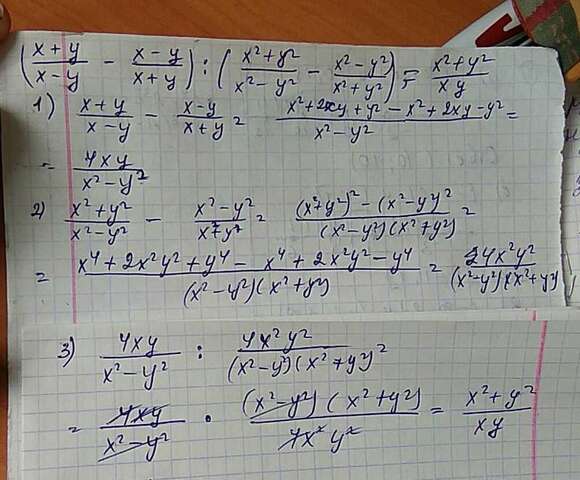 ((x+y)/(x-y) - (x-y)/(x+y)) : ((x²+y²)/(x²-y²) - (x²-y²)/(x²+y²)) = (x²+y²)/(xy)
1) (x+y)/(x-y) - (x-y)/(x+y) = (x²+2xy+y²-x²+2xy-y²)/(x²-y²) =
= (4xy)/(x²-y²)
2) (x²+y²)/(x²-y²) - (x²-y²)/(x²+y²) = ((x²+y²)²-(x²-y²)²)/((x²-y²)(x²+y²)) =
= (x⁴+2x²y²+y⁴-x⁴+2x²y²-y⁴)/((x²-y²)(x²+y²)) = (4x²y²)/((x²-y²)(x²+y²))
3) (4xy)/(x²-y²) : (4x²y²)/((x²-y²)(x²+y²)) =
= (4xy)/(x²-y²) · ((x²-y²)(x²+y²))/(4x²y²) = (x²+y²)/(xy)